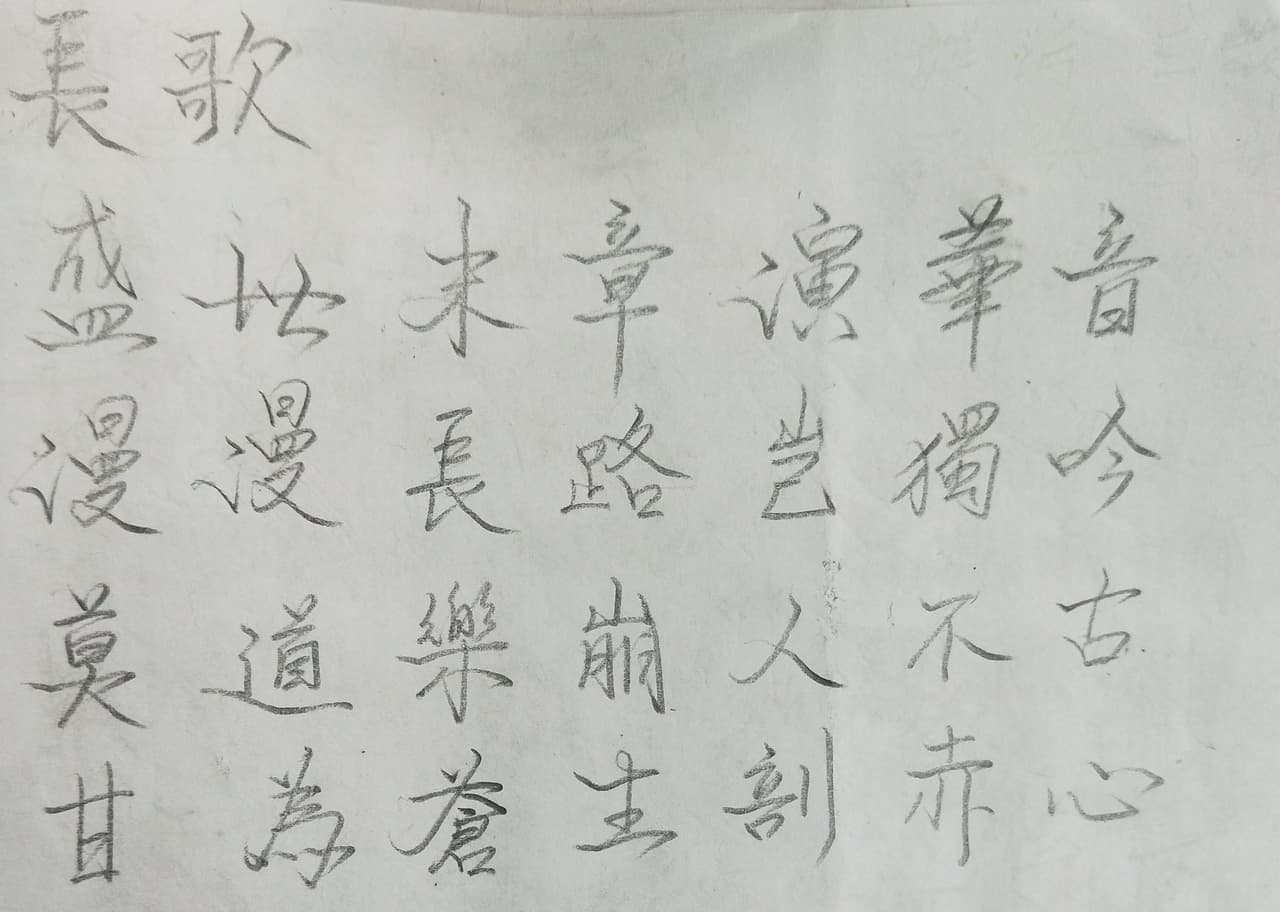 長歌
盛世末章演華音
漫漫長路豈獨吟
莫道樂崩人不古
甘為蒼生剖赤心